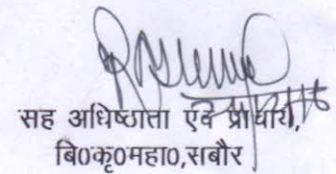 सह अधिष्ठाता एवं प्राचार्य,
बि०कृ०महा०,सबौर